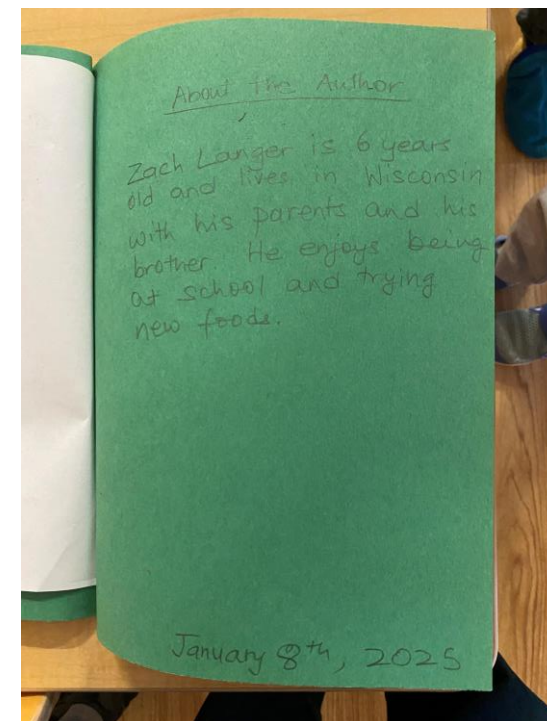 About the Author
Zach Langer is 6 years
old and lives in Wisconsin
with his parents and his
brother. He enjoys being
at school and trying
new foods.
January 8th, 2025